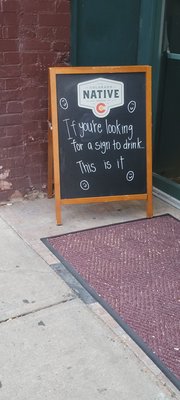 COLORADO
NATIVE
If you're looking
for a sign to drink.
This is it